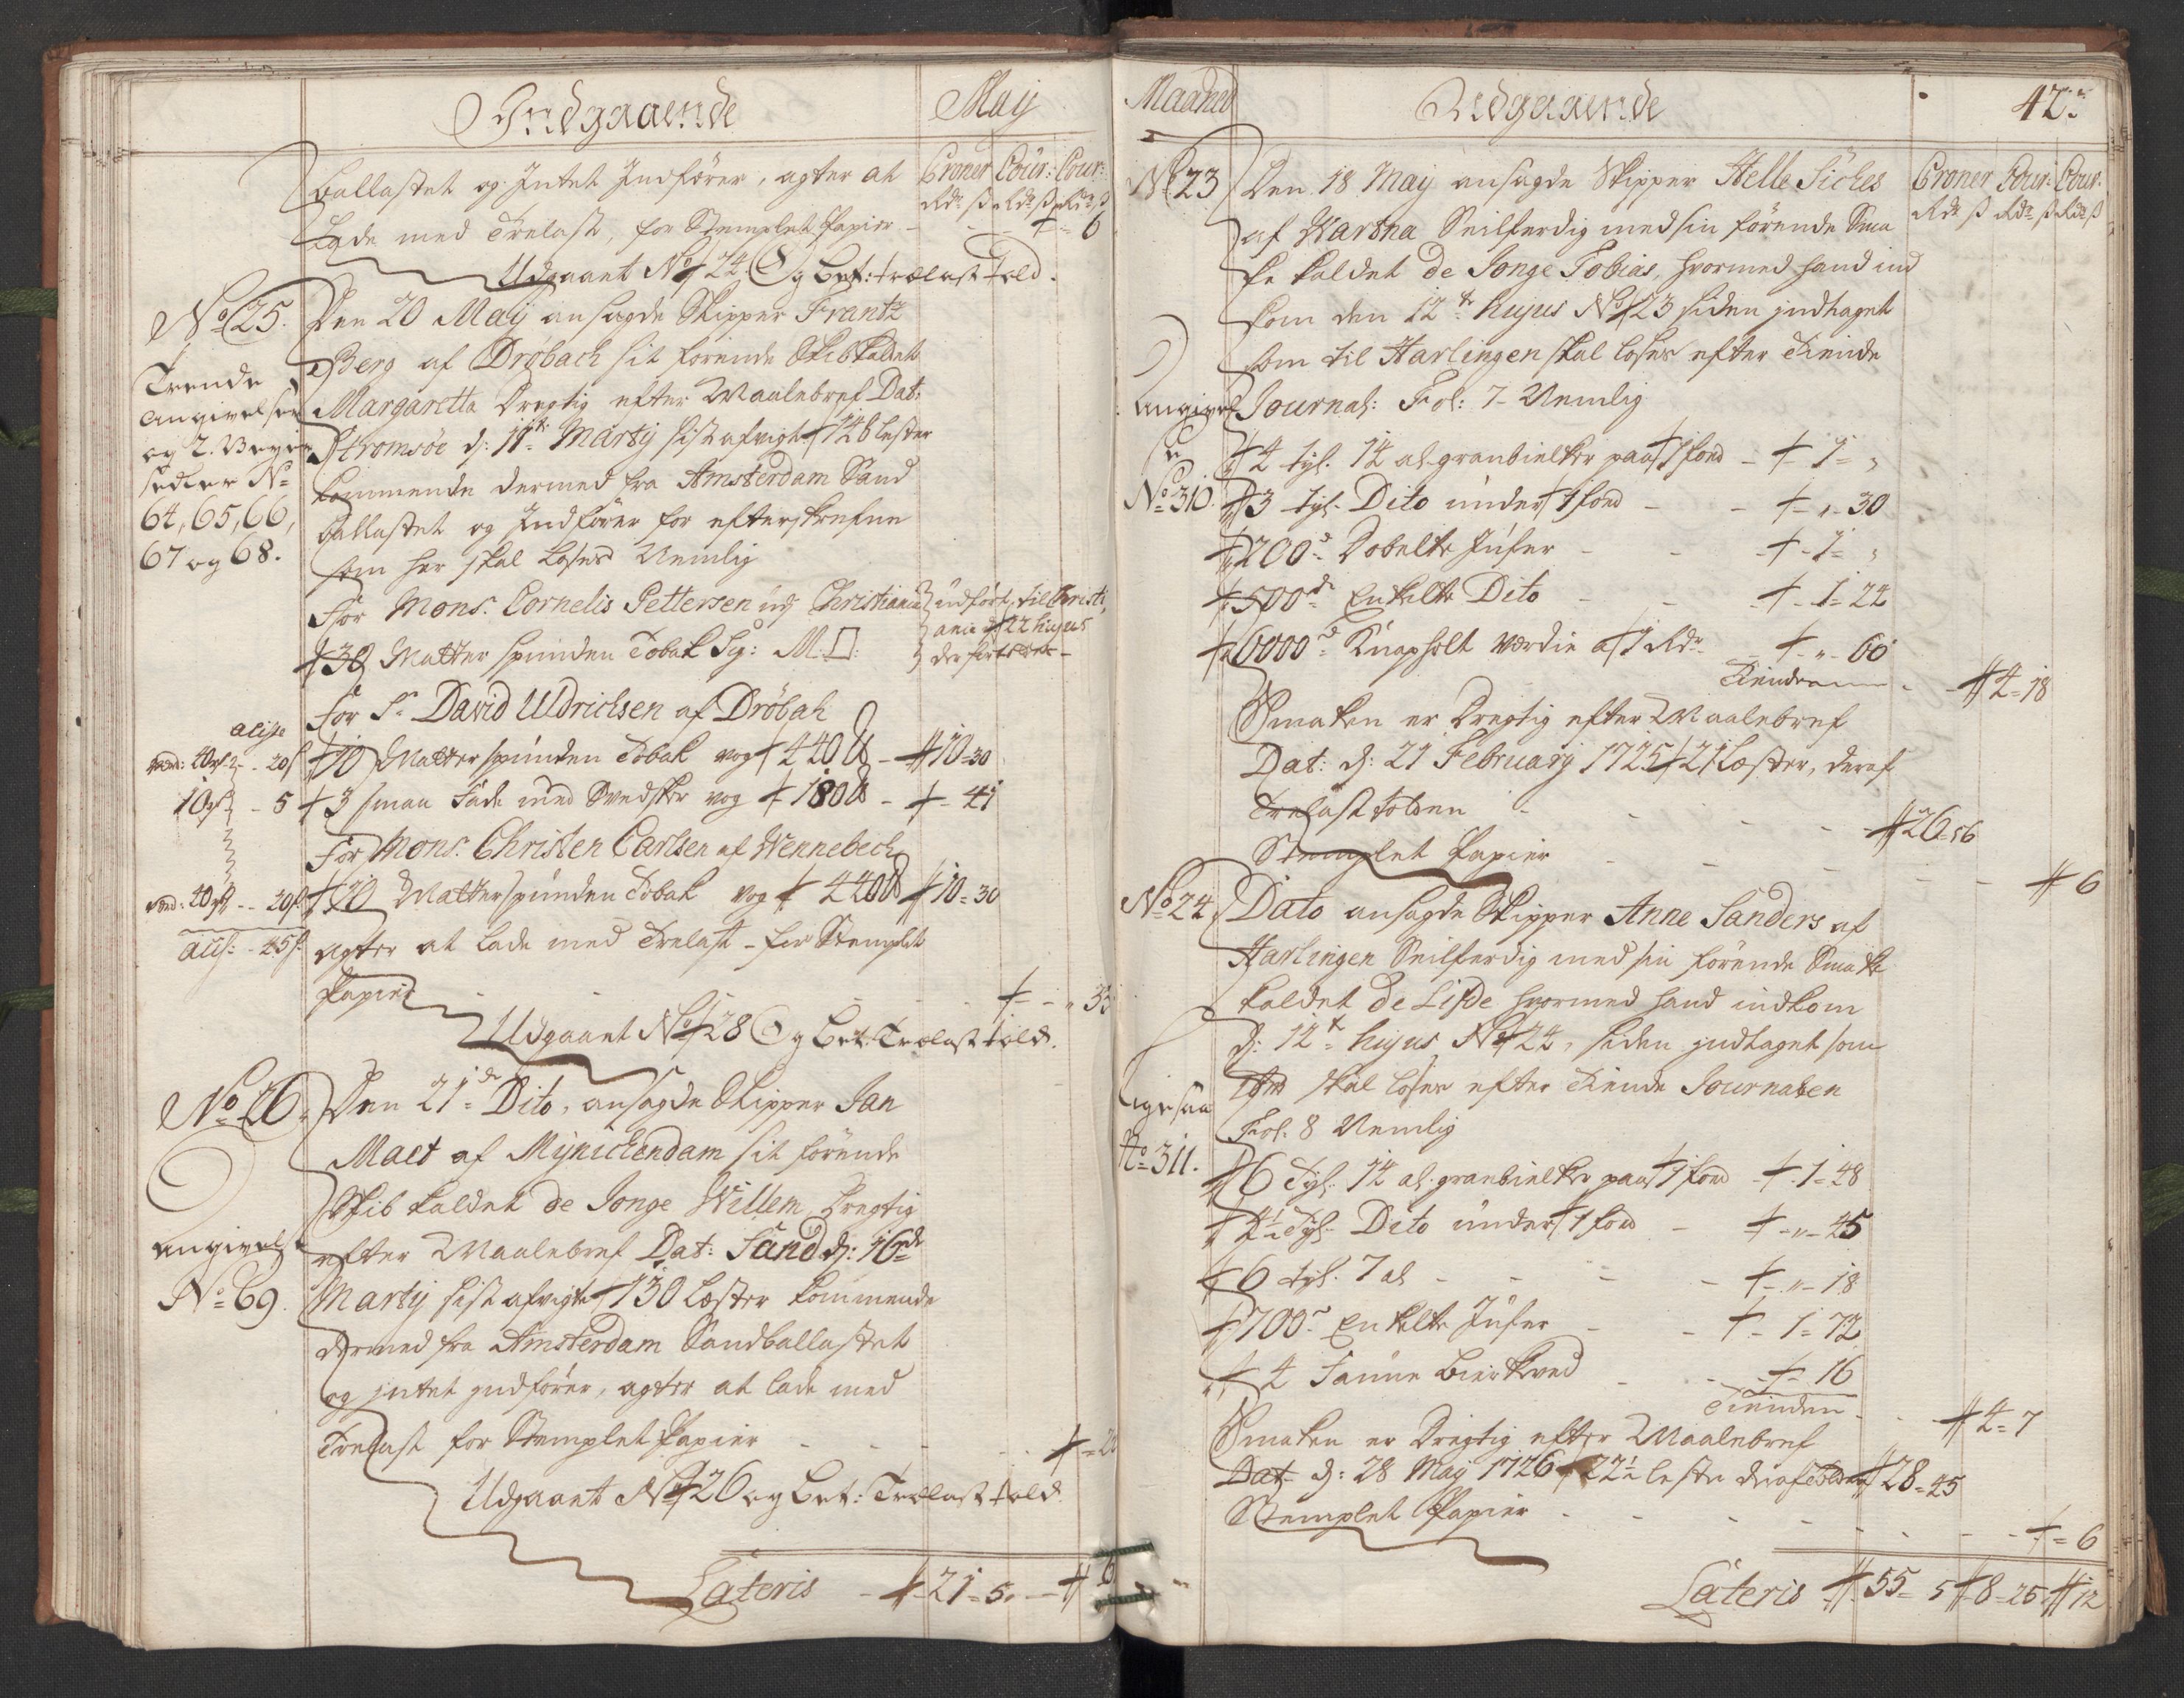 Indgaaende
May
Croner Cour: Cour:
Rdr ß Rdr ß Rdr ß
Ballastet og Intet Indfører, agter at
Lade med Trelast, for Stemplet Papier - - - 6
Udgaaet No 24 Og bet: trælast told.
No 25.
Den 20 May ansagde Skipper Frantz
Berg af Drøbach sit førende Skib kaldet
Margaretta Dregtig efter Maalebref Dat:
Strømsøe d: 11te Martij sist afvigt 146 lester
kommende dermed fra Amsterdam Sand
ballastet og Indfører for efterskrefne
som her skal Loses Nemlig
Trende
angivelser
og 2. Veyer
sedler No
64, 65, 66,
67 og 68.
For Mons. Cornelis Pettersen udj Christiania
udført til Christi
ania d 22 hujus
30 Matter spunden Tobak Sig: M:
For Sr David Uldrichsen af Drøbak
10 Matter spunden Tobak vog 440 - 10=30
3 smaa Fade med Svedsker vog 180 - 41
10 - 5
For Mons. Christen Carlsen af Wennebech
10 Matter spunden Tobak vog 440 10=30
agter at lade med Trelast - for Stemplet
Papier - - -
Udgaaet No 28 Og bet: Trælast told.
No 26.
Den 21de Dito, ansagde Skipper Jan
Maet af Mynichendam sit førende
Skib kaldet de Jonge Willem, Dregtig
efter Maalebref Dat: Sand d: 16de
Martij sist afvigte 130 Læster kommende
dermed fra Amsterdam Sandballastet
og intet indfører, agter at lade med
Trelast for Stemplet Papier - - -
angivelse
No 69.
Udgaaet No 26 og bet: Trælast told.
Lateris - 21=5. - 6
Maaned
Udgaaende
42.
Croner Cour: Cour:
Rdr ß Rdr ß Rdr ß
No 23
Den 18 May ansagde Skipper Helle Siches
af Warkna Seilferdig med sin førende Sma
ke kaldet de Jonge Tobias, hvormed hand ind
kom den 12te hujus No 23 siden indtaget
som til Harlingen skal loses efter Tiende
Journal: Fol: 7 - Nemlig
angivel
se
No 310.
4 tyl. 14 al granbielker paa 1 ford - 1 = "
3 tyl. Dito under 1 ford - - " - 30
200de Dobelte Jufer - - 1 = "
500de Enkelte Dito - - 1 = 24
6000de Knapholt værdie a 1 Rdr - " - 60
Tienden - 4=18
Smaken er Dregtig efter Maalebref
Dat: d: 21 February 1725 21 Læster, deraf
Trælast tolden - - - 26=56
Stemplet Papier - - - 6
No 24
Dato ansagde Skipper Anne Sanders af
Harlingen Seilferdig med sin førende Smake
kaldet de Lifde hvormed hand indkom
d: 12te hujus No 24, siden indtaget som
skal loses efter Tiende Journalen
Fol: 8 Nemlig
ligesaa
No 311.
6 Tyl. 14 al. granbielker paa 1 ford - 1=48
4½ Tyl. Dito under 1 ford - " - 45
6 tyl. 7 al - - - " - 18
700de Enkelte Jufer - - 1=72
4 Faune Bierkeved - - 16
Tienden - - 4=7
Smaken er Dregtig efter Maalebref
Dat: d: 28 May 1726 22½ lester deraf Tolden 28=45
Stemplet Papier - - - 6
Lateris 55=5 8=25 12